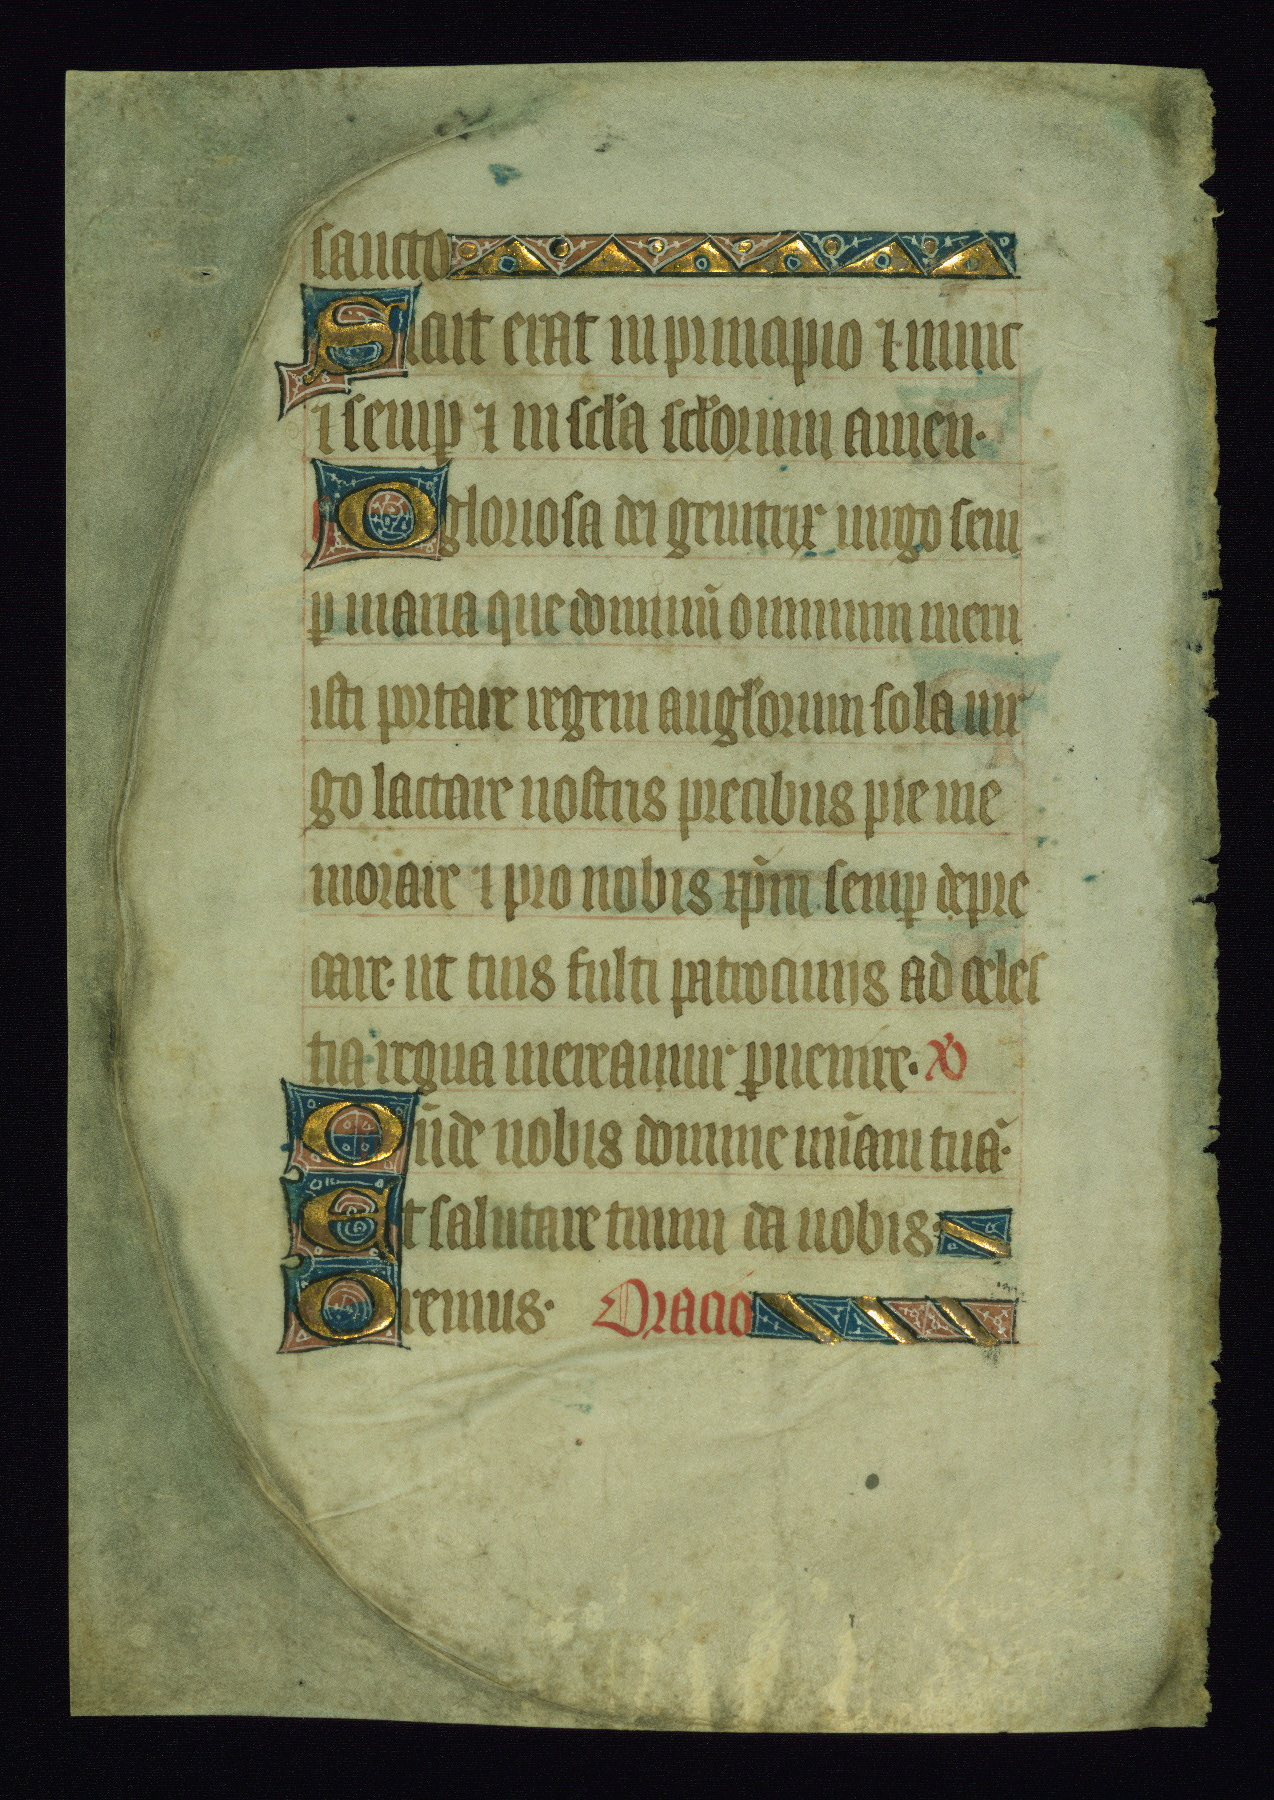 sancto
Sicut erat in principio ⁊ nunc
⁊ semꝑ ⁊ in scl̃a scl̃orum amen·
O gloriosa dei genitrix uirgo sem
ꝑ maria que dominũ omnium meru
isti portare regem angl̃orum sola uir
go lactare nostris precibus pie me
morare ⁊ pro nobis xp̃m semꝑ depre
care· ut tuis fulti patrociniis ad celes
tia regna mereamur ꝑuenire· ℣
Oñde nobis domine mĩam tuã·
Et salutare tuum da nobis·
Oremus· Oracio